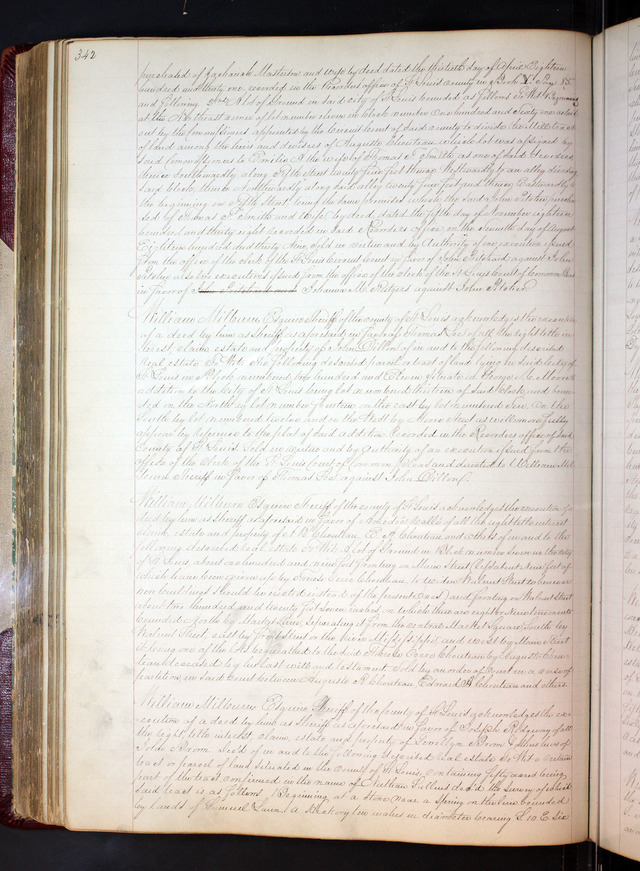 342
purchased of Zachariah Masterson and wife by deed dated the thirtieth day of April Eighteen
hundred and thirty one, recorded in the Recorders office of St Louis county in Book
and following Also A lot of Ground in said city of St Louis bounded as follows To Wit Beginning
at the Northeast corner of lot number eleven in block number One hundred and Sixty one as laid
out by the Commissioners appointed by the Circuit Court of said county to divide the Mill tract
of land among the heirs and devisees of Auguste Chouteau which lot was assigned by
said Commissioners to Emilie the wife of Thomas F. Smith as one of said devisees
thence Southwardly along Fifth Street twenty five feet thence Westwardly to an alley dividing
said block, thence Northwardly along said alley twenty five feet and thence Eastwardly to
the beginning on Fifth Street being the same premises which the said John Pitcher purcha-
sed of Thomas F. Smith and wife by deed dated the fifth day of November eighteen
hundred and thirty eight recorded in said Recorders office on the seventh day of August
Eighteen hundred and thirty nine, sold in virtue and by Authority of one execution issued
from the office of the clerk of the St Louis Circuit Court in favor of John against John
also one execution issued from the office of the clerk of the St Louis Court of Common Pleas
in favor of Johanna M. against John
William Milburn Esquire Sheriff of the county of St Louis acknowledges the execution
of a deed by him as Sheriff as aforesaid in favor of Thomas Fox of all the right title in-
terest, claim, estate and property of John Dillon of in and to the following described
real estate To Wit the following described parcel or lot of land lying in said city of
St Louis in Block numbered one hundred and Eleven
addition to the City of St Louis being lot numbered thirteen of said block, and bound-
ed on the North by lot number fourteen on the east by lot numbered on the
South by lot numbered twelve and on the West by Street as will more fully
appear by reference to the plat of said addition Recorded in the Recorders office of said
County of St Louis Sold in virtue and by Authority of an execution issued from the
office of the clerk of the St Louis Court of Common Pleas and directed to William Mil-
burn Sheriff in favor of Thomas Fox against John Dillon.
William Milburn Esquire Sheriff of the county of St Louis acknowledges the execution of a
deed by him as Sheriff as aforesaid in favor of of all the right title interest
claim, estate and property of Chouteau, Chouteau and others of in and to the
following described real estate To Wit A lot of Ground in Block number seven in the city
of St Louis, about one hundred and nine feet fronting on Main Street (less about nine feet of
which have been given up by Pierre Chouteau to widen Walnut Street in case
new buildings should be erected instead of the present ones) and fronting on Walnut Street
about two hundred and twenty feet seven inches, on which there are eight tenements
bounded north by Market line, separating it from the centre Market Square South by
Walnut Street, east by front Street or the river Mississippi and west by Main Street
it being one of the lots bequeathed to Chouteau by Auguste Chou-
teau deceased by his last will and testament Sold by an order of Court in a case of
partition, in said Court between Auguste Chouteau, Edward Chouteau and others
William Milburn Esquire Sheriff of the county of St Louis acknowledges the ex-
ecution of a deed by him as Sheriff as aforesaid in favor of Joseph Ridgway of all
the right title interest claim, estate and property of Llewellyn Brown & other heirs of
John Brown decd of in and to the following described real estate To Wit a certain
tract or parcel of land situated in the county of St Louis, containing fifty acres being
part of the tract confirmed in the name of decd the survey of which
said tract is as follows, Beginning at a stone near a spring on the line bounded
by lands of Samuel a Hickory ten inches in diameter bearing S 10 E. Six